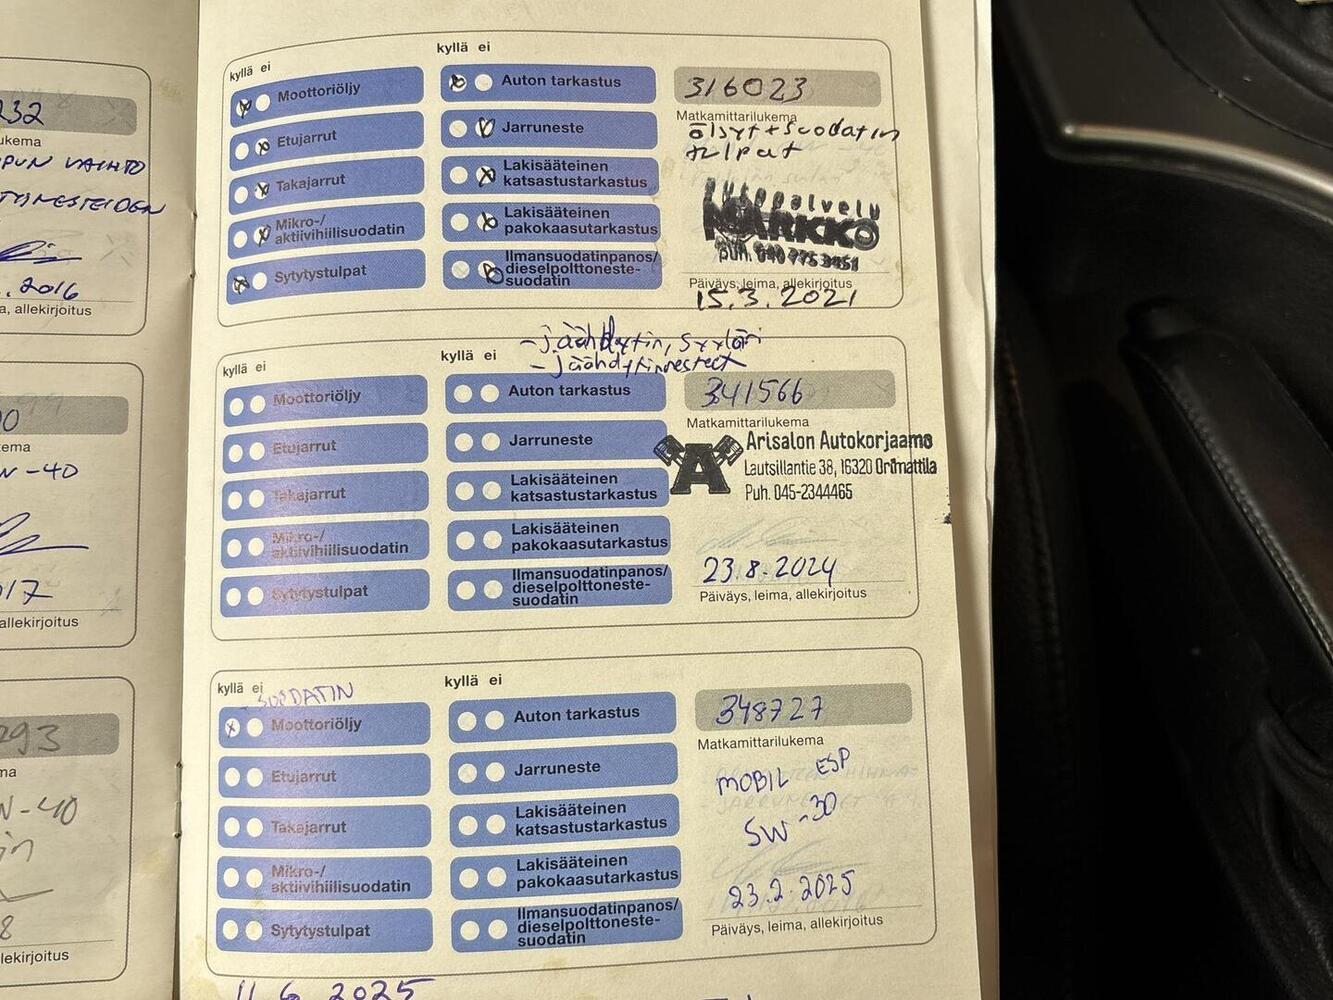 232
ukema
PUN VAIHTO
TYINESTEIDEN
. 2016
a, allekirjoitus
kyllä ei
kyllä ei
Moottoriöljy
Etujarrut
Takajarrut
Mikro-/
aktiivihiilisuodatin
Sytytystulpat
Auton tarkastus
Jarruneste
Lakisääteinen
katsastustarkastus
Lakisääteinen
pakokaasutarkastus
Ilmansuodatinpanos/
dieselpolttoneste-
suodatin
316023
Matkamittarilukema
öljyt + suodatin
tulpat
Autopalvelu
MARKKO
puh. 040 775 3451
Päiväys, leima, allekirjoitus
15.3.2021
- jäähdytin, syyläri
- jäähdytinnesteet
kyllä ei
kyllä ei
Moottoriöljy
Etujarrut
Takajarrut
Mikro-/
aktiivihiilisuodatin
Sytytystulpat
Auton tarkastus
Jarruneste
Lakisääteinen
katsastustarkastus
Lakisääteinen
pakokaasutarkastus
Ilmansuodatinpanos/
dieselpolttoneste-
suodatin
341566
Matkamittarilukema
A
Arisalon Autokorjaamo
Lautsillantie 38, 16320 Orimattila
Puh. 045-2344465
23.8.2024
Päiväys, leima, allekirjoitus
0
ema
W-40
17
allekirjoitus
kyllä ei
kyllä ei
SUODATIN
Moottoriöljy
Etujarrut
Takajarrut
Mikro-/
aktiivihiilisuodatin
Sytytystulpat
Auton tarkastus
Jarruneste
Lakisääteinen
katsastustarkastus
Lakisääteinen
pakokaasutarkastus
Ilmansuodatinpanos/
dieselpolttoneste-
suodatin
348727
Matkamittarilukema
MOBIL ESP
5W-30
23.2.2025
Päiväys, leima, allekirjoitus
293
ma
W-40
in
8
lekirjoitus
11.6.2025